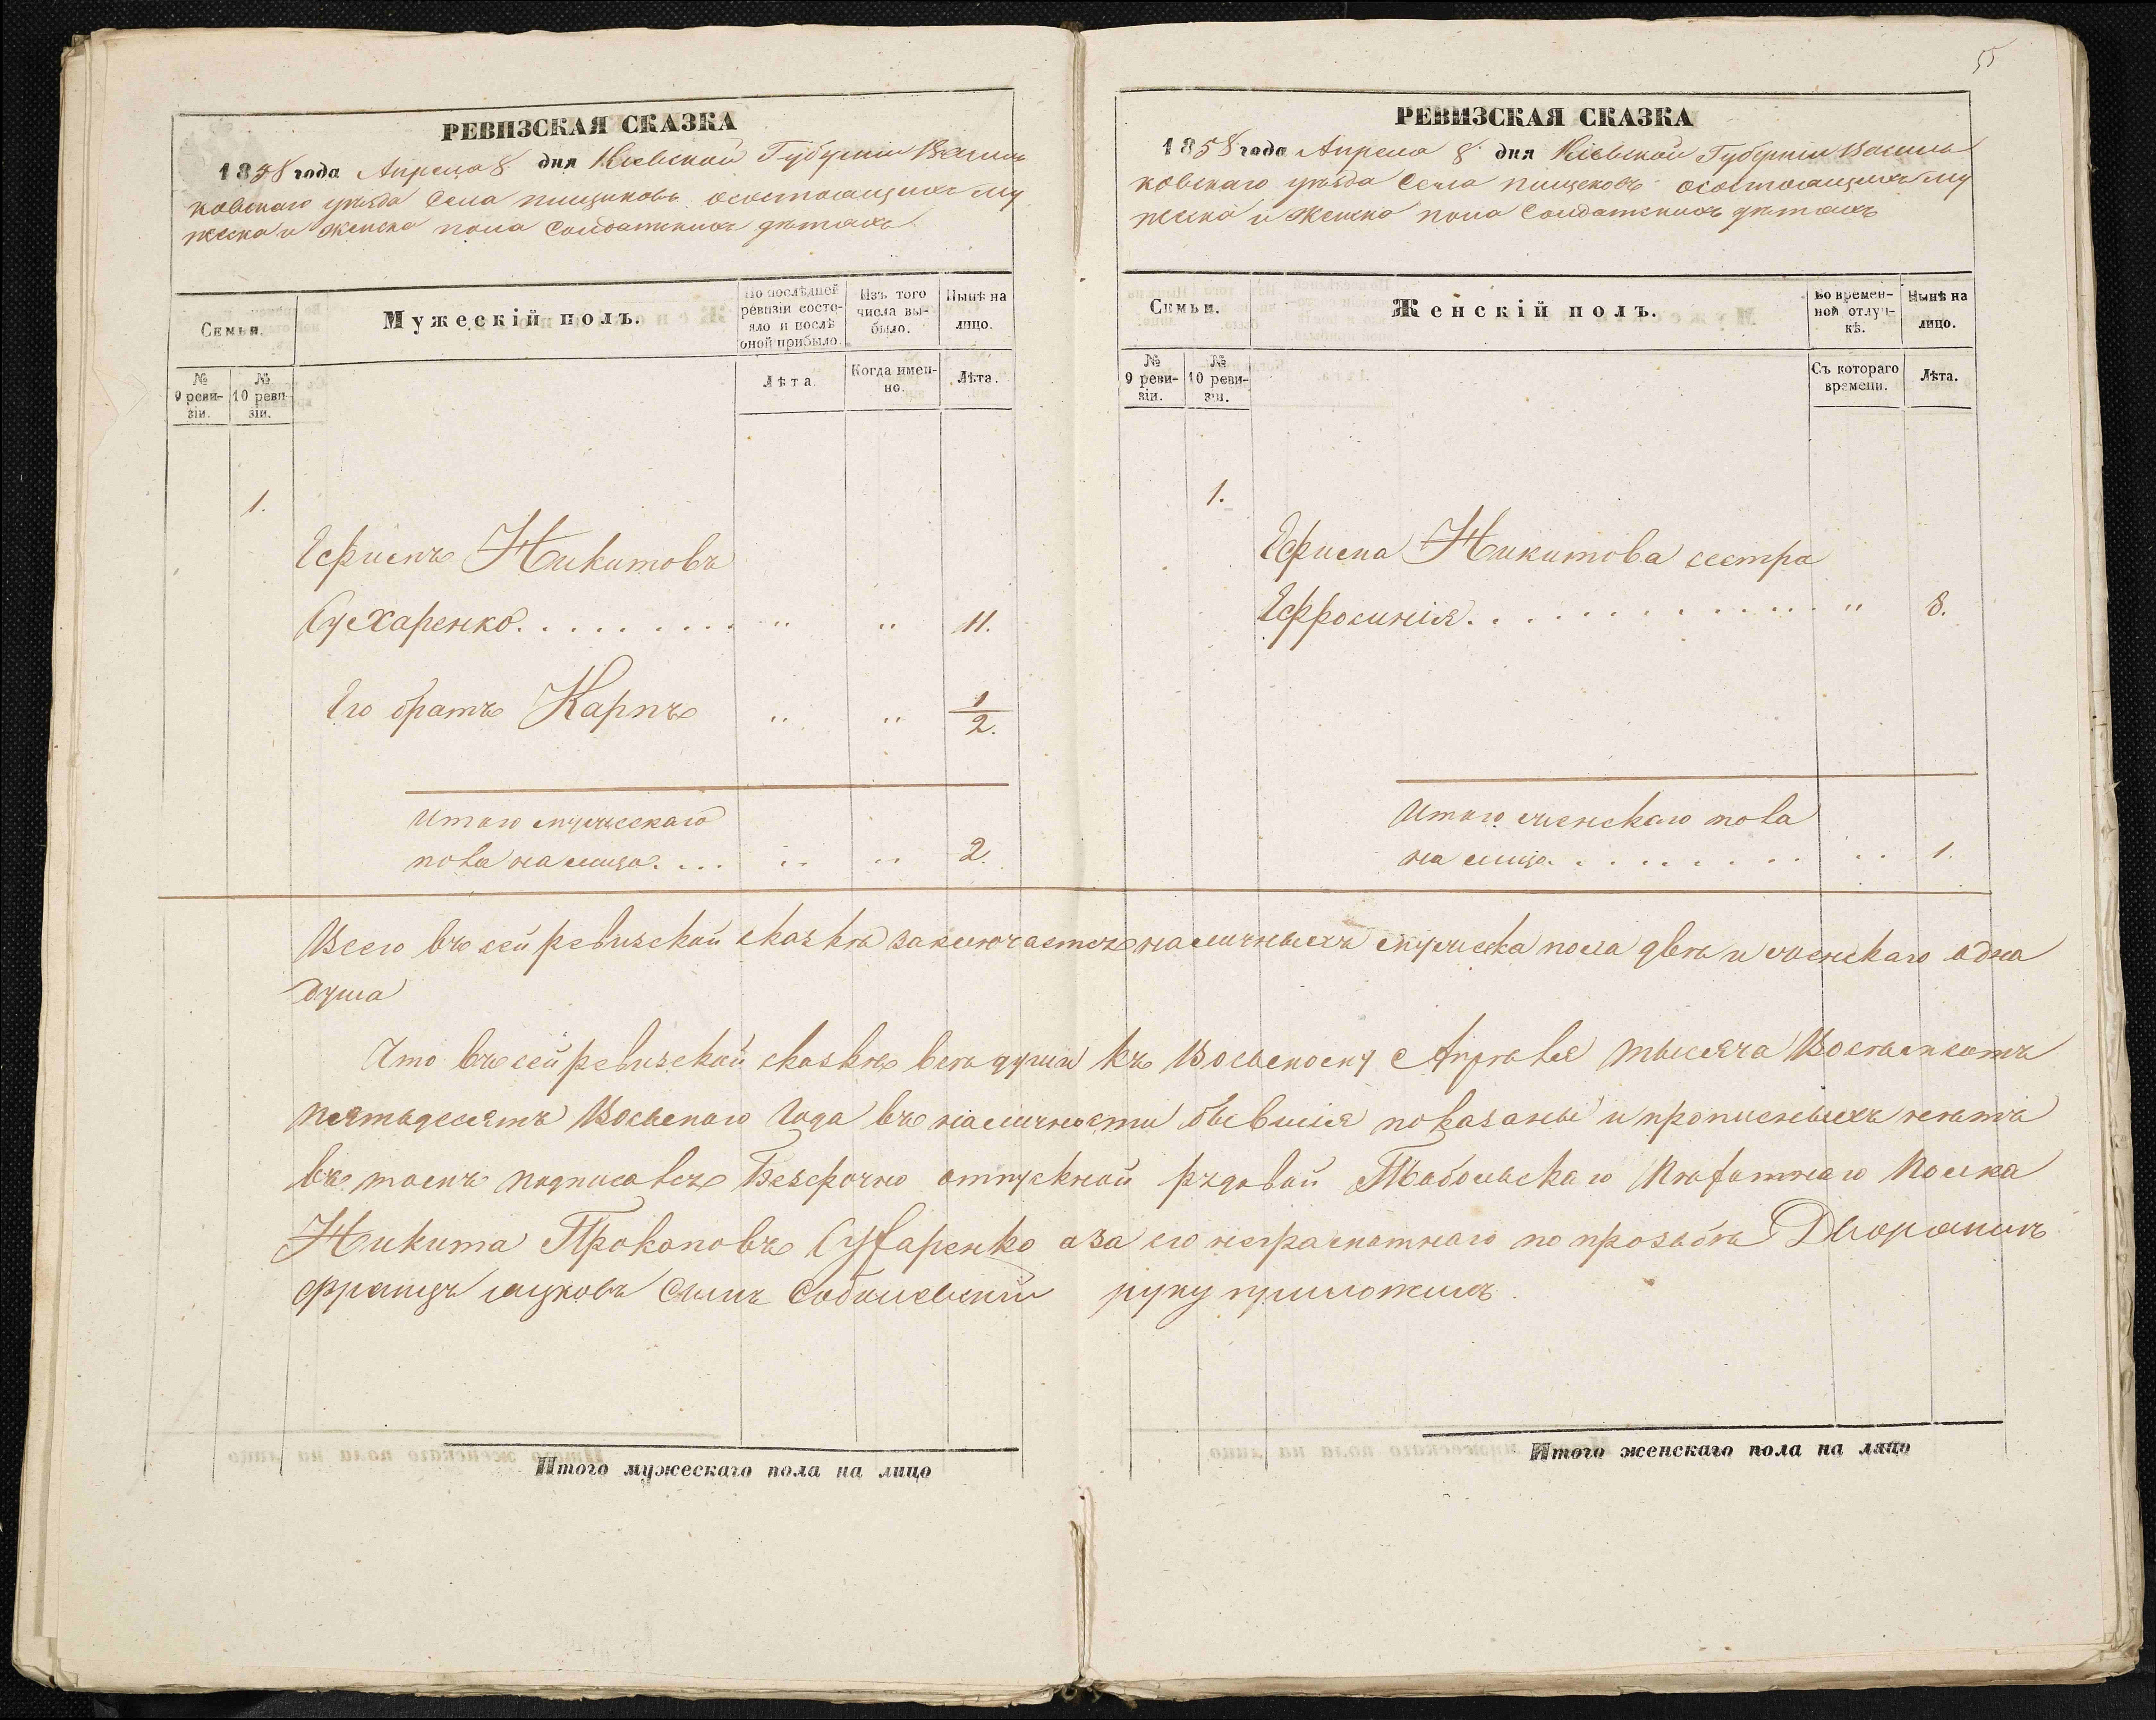 55
РЕВИЗСКАЯ СКАЗКА
1858 года Апреля 8 дня Кіевской Губерніи Василь
ковскаго уѣзда Села пищиковъ осостоящихъ му
жеска и женска пола Солдатскихъ дѣтахъ
Семьи.
Мужескій полъ.
По послѣдней ревизіи состояло и послѣ оной прибыло.
Изъ того числа выбыло.
Нынѣ на лицо.
№ 9 ревизіи.
№ 10 ревизіи.
Лѣта.
Когда именно.
Лѣта.
1.
Ефимъ Никитовъ
Сухаренко. . . . . . . . . " " 11.
Его братъ Карпъ " " 1/2.
Итого мужескаго
пола на лицо. . . . " " 2.
РЕВИЗСКАЯ СКАЗКА
1858 года Апреля 8 дня Кіевской Губерніи Василь
ковскаго уѣзда Села пищековъ осостоящихъ му
жеска и женска пола Солдатскихъ дѣтахъ
Семьи.
Женскій полъ.
Во временной отлучкѣ.
Нынѣ на лицо.
№ 9 ревизіи.
№ 10 ревизіи.
Съ котораго времени.
Лѣта.
1.
Ефима Никитова сестра
Ефросинія. . . . . . . . . . . . " 8.
Итого женскаго пола
на лицо. . . . . . . . . . " 1.
Всего въ сей ревизской сказкѣ заключается наличныхъ мужеска пола двѣ и женскаго одна
душа
Что въ сей ревизской сказкѣ всѣ души къ Восьмому Апрѣля тысяча Восѣмсотъ
пятьдесятъ Восьмаго Года въ наличности бывшія показаны и прописныхъ нѣтъ
въ томъ подписалсе Безсрочно отпускной рядовой Тобольскаго Пѣхотнаго Полка
Никита Прокоповъ Сухаренко а за его неграмотнаго по прозьбѣ Дворянинъ
францъ сынъ руку приложилъ.
Итого мужескаго пола на лицо
Итого женскаго пола на лицо